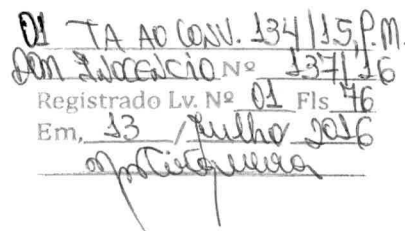 01 TA AO CONV. 134/15, P.M.
DOM INOCENCIO Nº 137/16
Registrado Lv. Nº 01 Fls 76
Em, 13 / Julho 2016